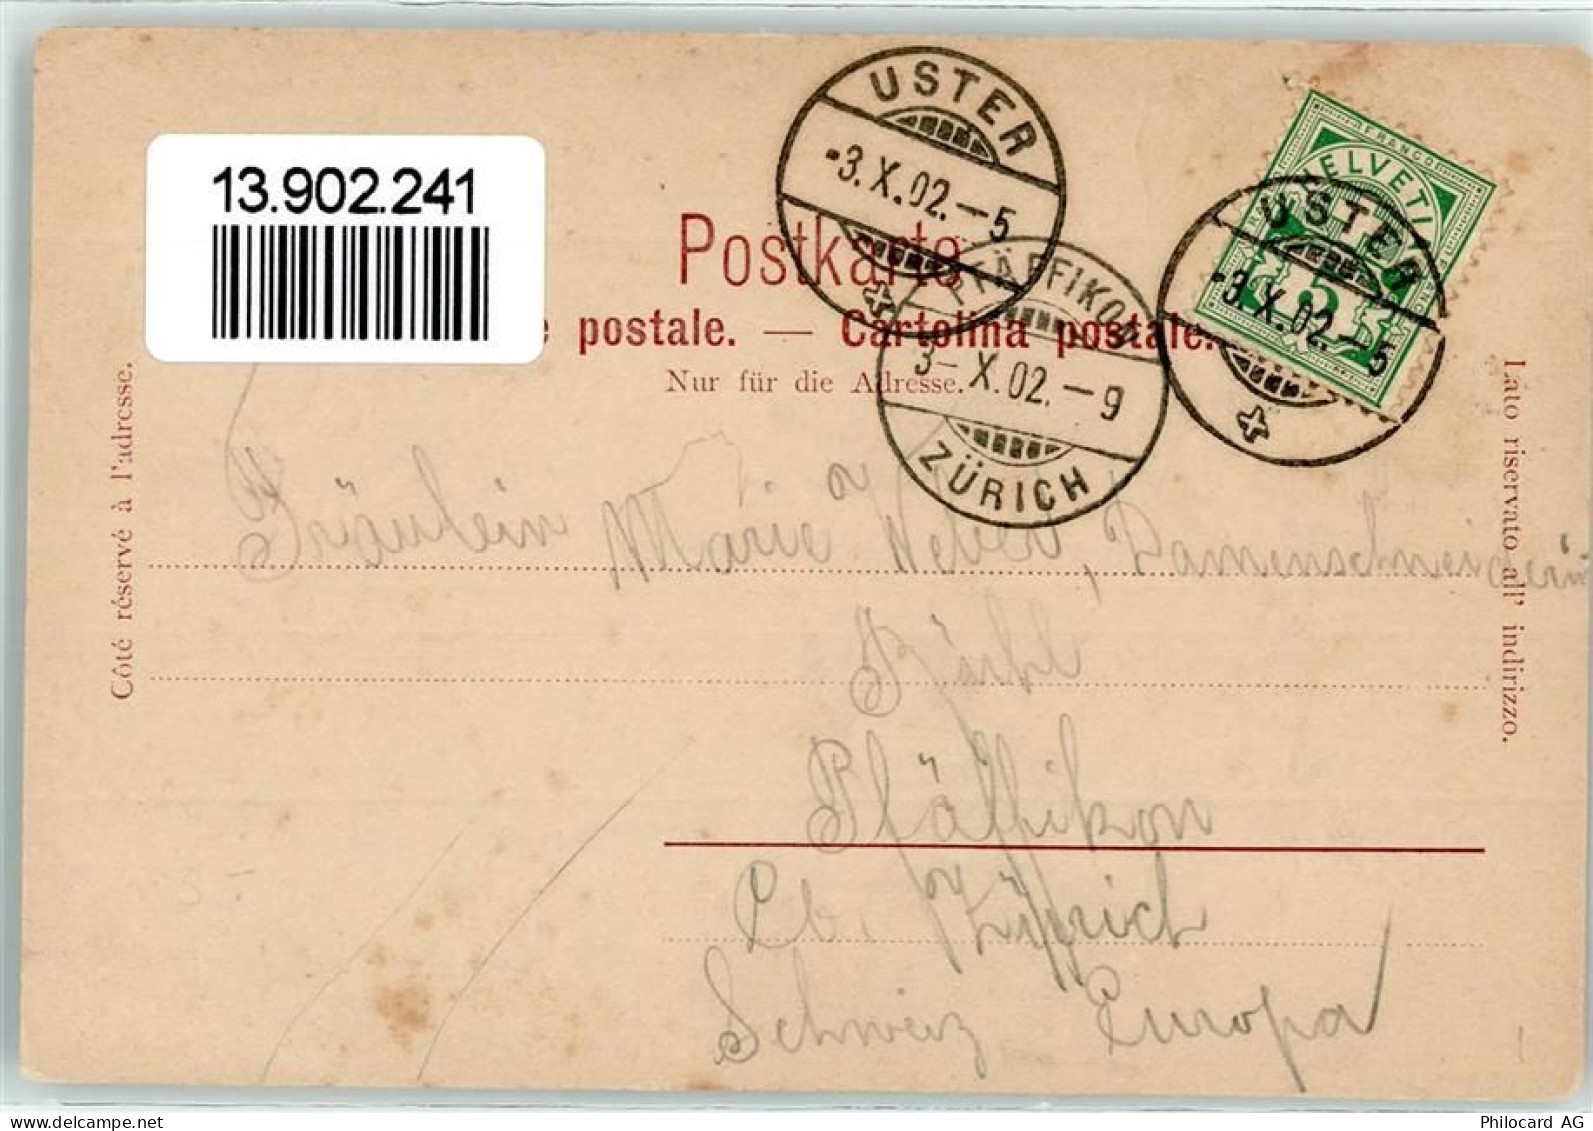 13.902.241
USTER
-3.X.02.-5
FRANCO
HELVETI
USTER
-3.X.02.-5
Postkarte
e postale. — Cartolina postale.
Nur für die Adresse.
PFÄFFIKON
3-X.02.-9
ZÜRICH
Côté réservé à l'adresse.
Lato riservato all' indirizzo.
Fräulein Marie Weber, Damenschneiderin
Pfäffikon
Ct. Zürich
Schweiz Europa
delcampe.net
Philocard AG